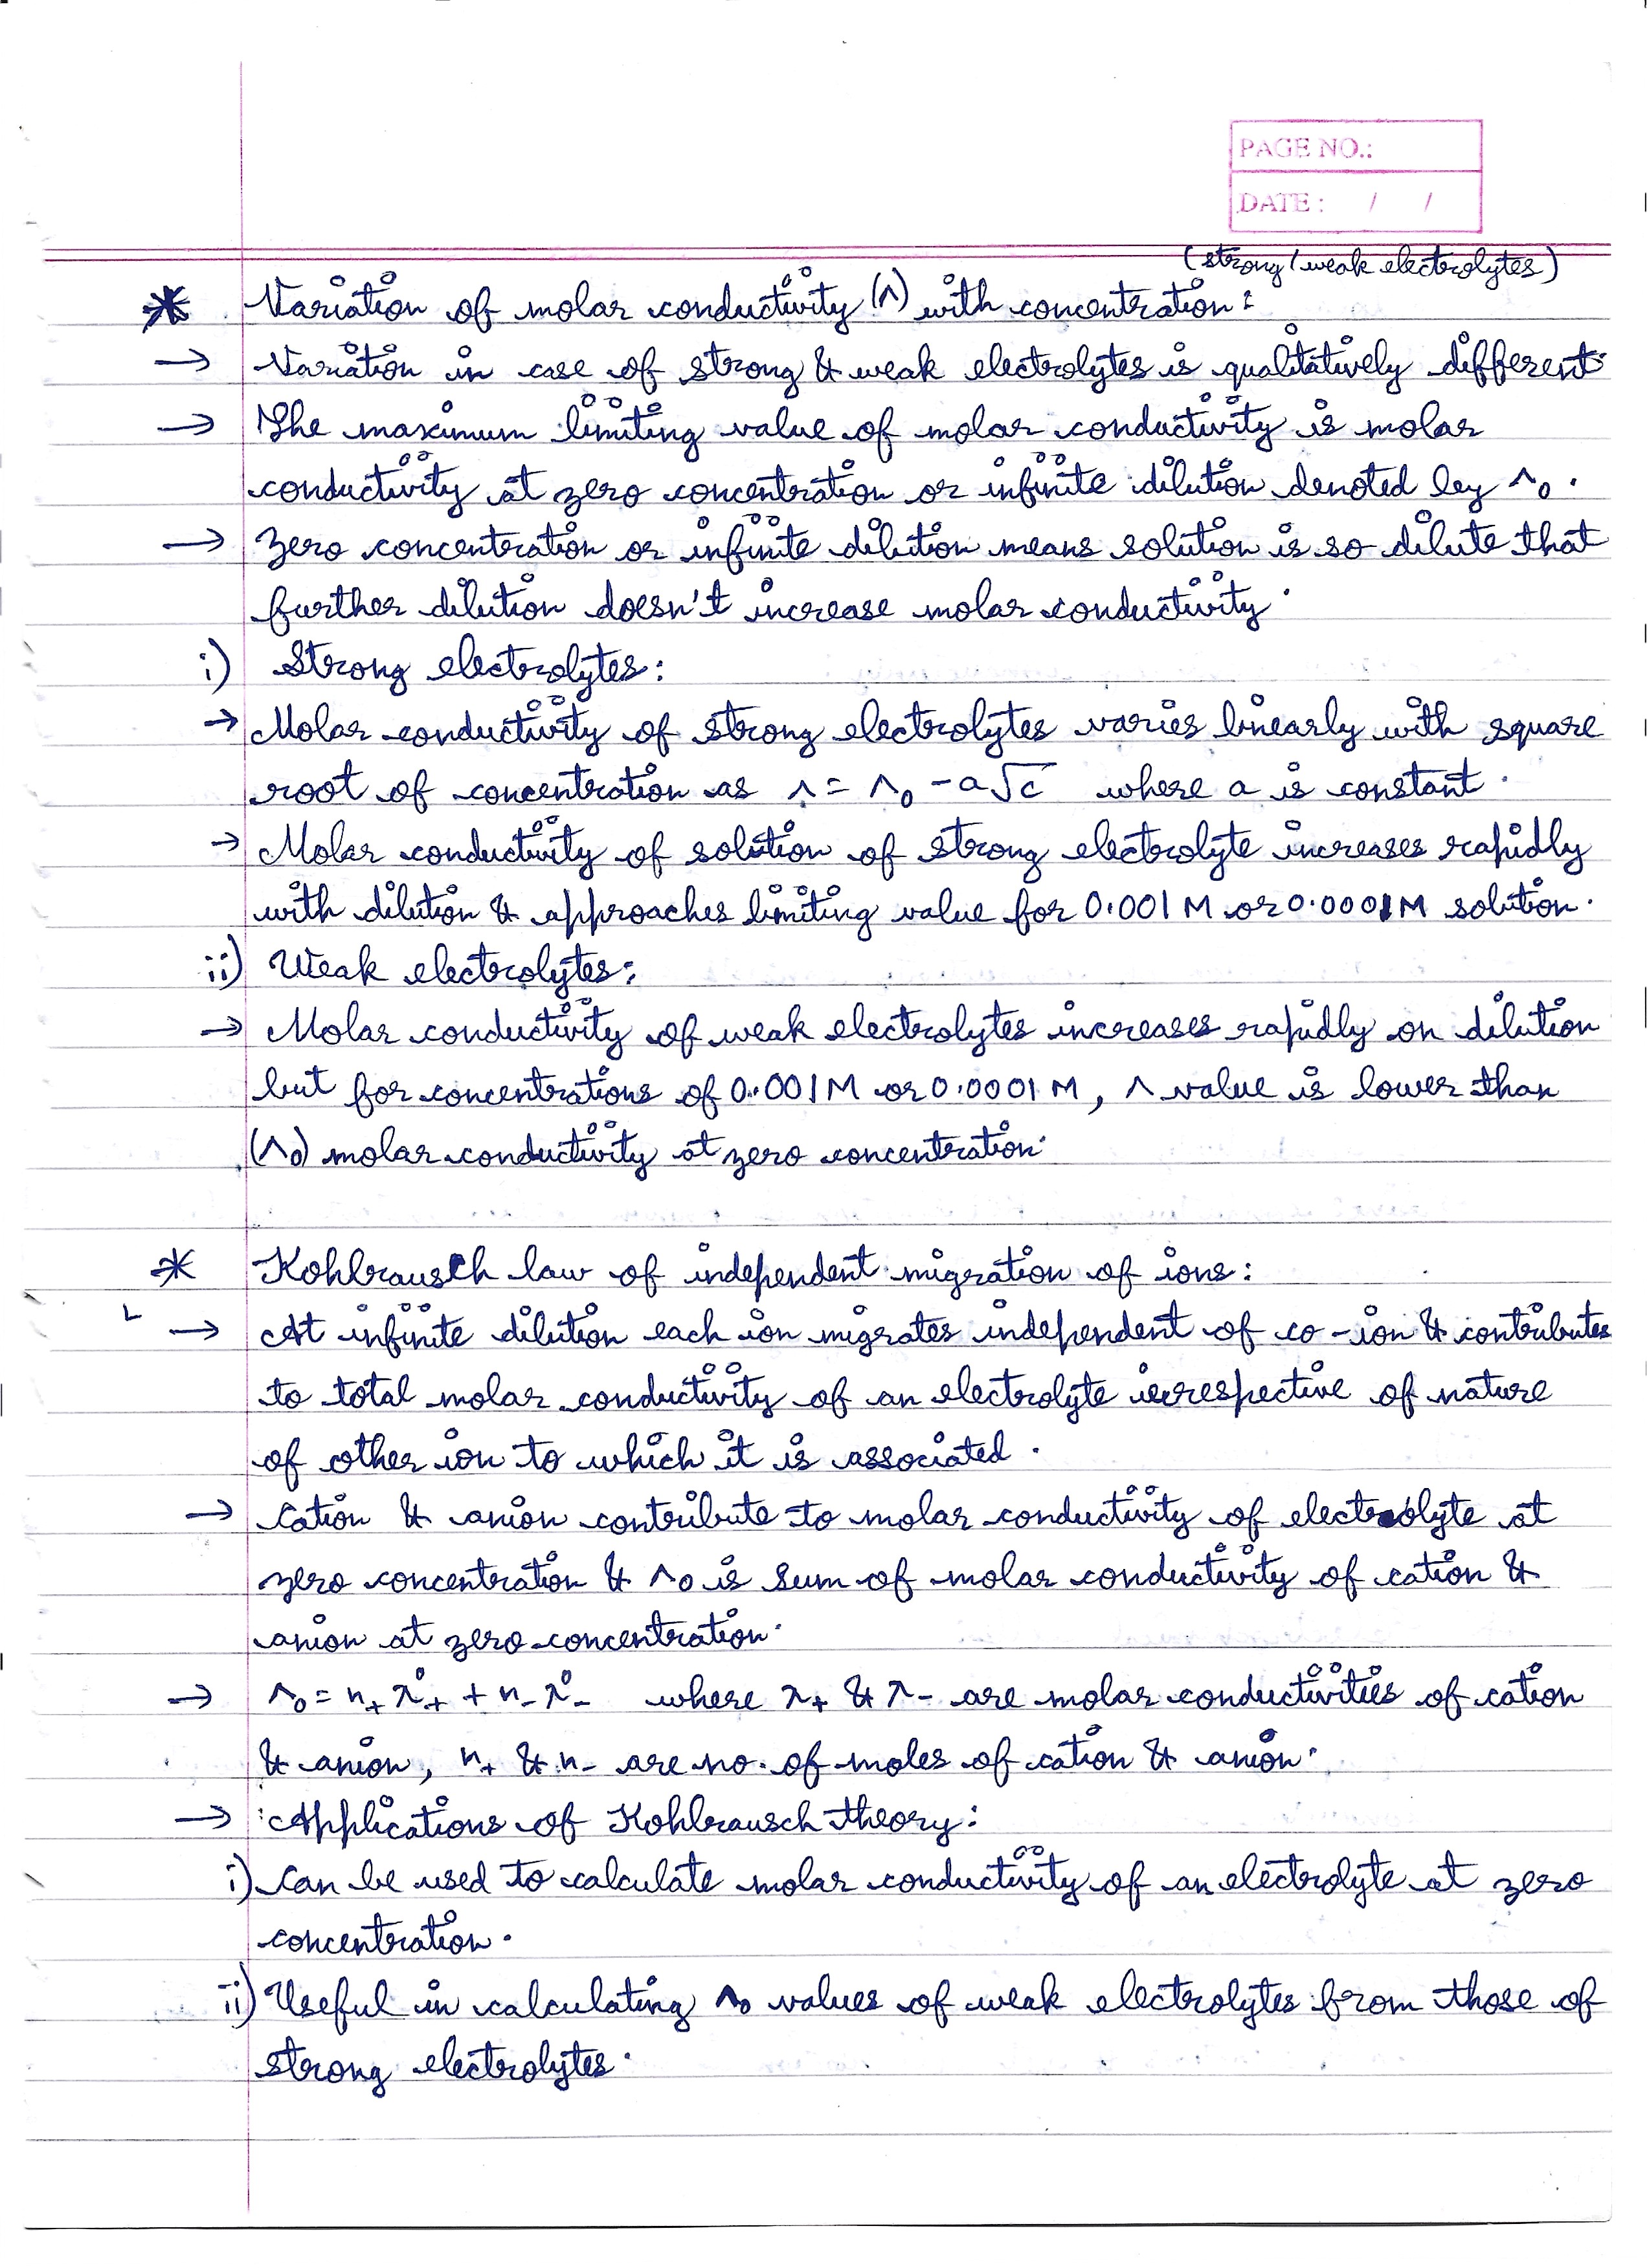 PAGE NO.:
DATE : / /
(strong/weak electrolytes)
* Variation of molar conductivity (∧) with concentration:
→ Variation in case of strong & weak electrolytes is qualitatively different.
→ The maximum limiting value of molar conductivity is molar
conductivity at zero concentration or infinite dilution denoted by ∧₀.
→ Zero concentration or infinite dilution means solution is so dilute that
further dilution doesn't increase molar conductivity.
i) Strong electrolytes:
→ Molar conductivity of strong electrolytes varies linearly with square
root of concentration as ∧ = ∧₀ - a√c where a is constant.
→ Molar conductivity of solution of strong electrolyte increases rapidly
with dilution & approaches limiting value for 0.001 M or 0.0001M solution.
ii) Weak electrolytes:
→ Molar conductivity of weak electrolytes increases rapidly on dilution
but for concentrations of 0.001M or 0.0001 M, ∧ value is lower than
(∧₀) molar conductivity at zero concentration.
* Kohlrausch law of independent migration of ions:
→ At infinite dilution each ion migrates independent of co-ion & contributes
to total molar conductivity of an electrolyte irrespective of nature
of other ion to which it is associated.
→ Cation & anion contribute to molar conductivity of electrolyte at
zero concentration & ∧₀ is sum of molar conductivity of cation &
anion at zero concentration.
→ ∧₀ = n₊ λ°₊ + n₋ λ°₋ where λ₊ & λ₋ are molar conductivities of cation
& anion, n₊ & n₋ are no. of moles of cation & anion.
→ Applications of Kohlrausch theory:
i) Can be used to calculate molar conductivity of an electrolyte at zero
concentration.
ii) Useful in calculating ∧₀ values of weak electrolytes from those of
strong electrolytes.